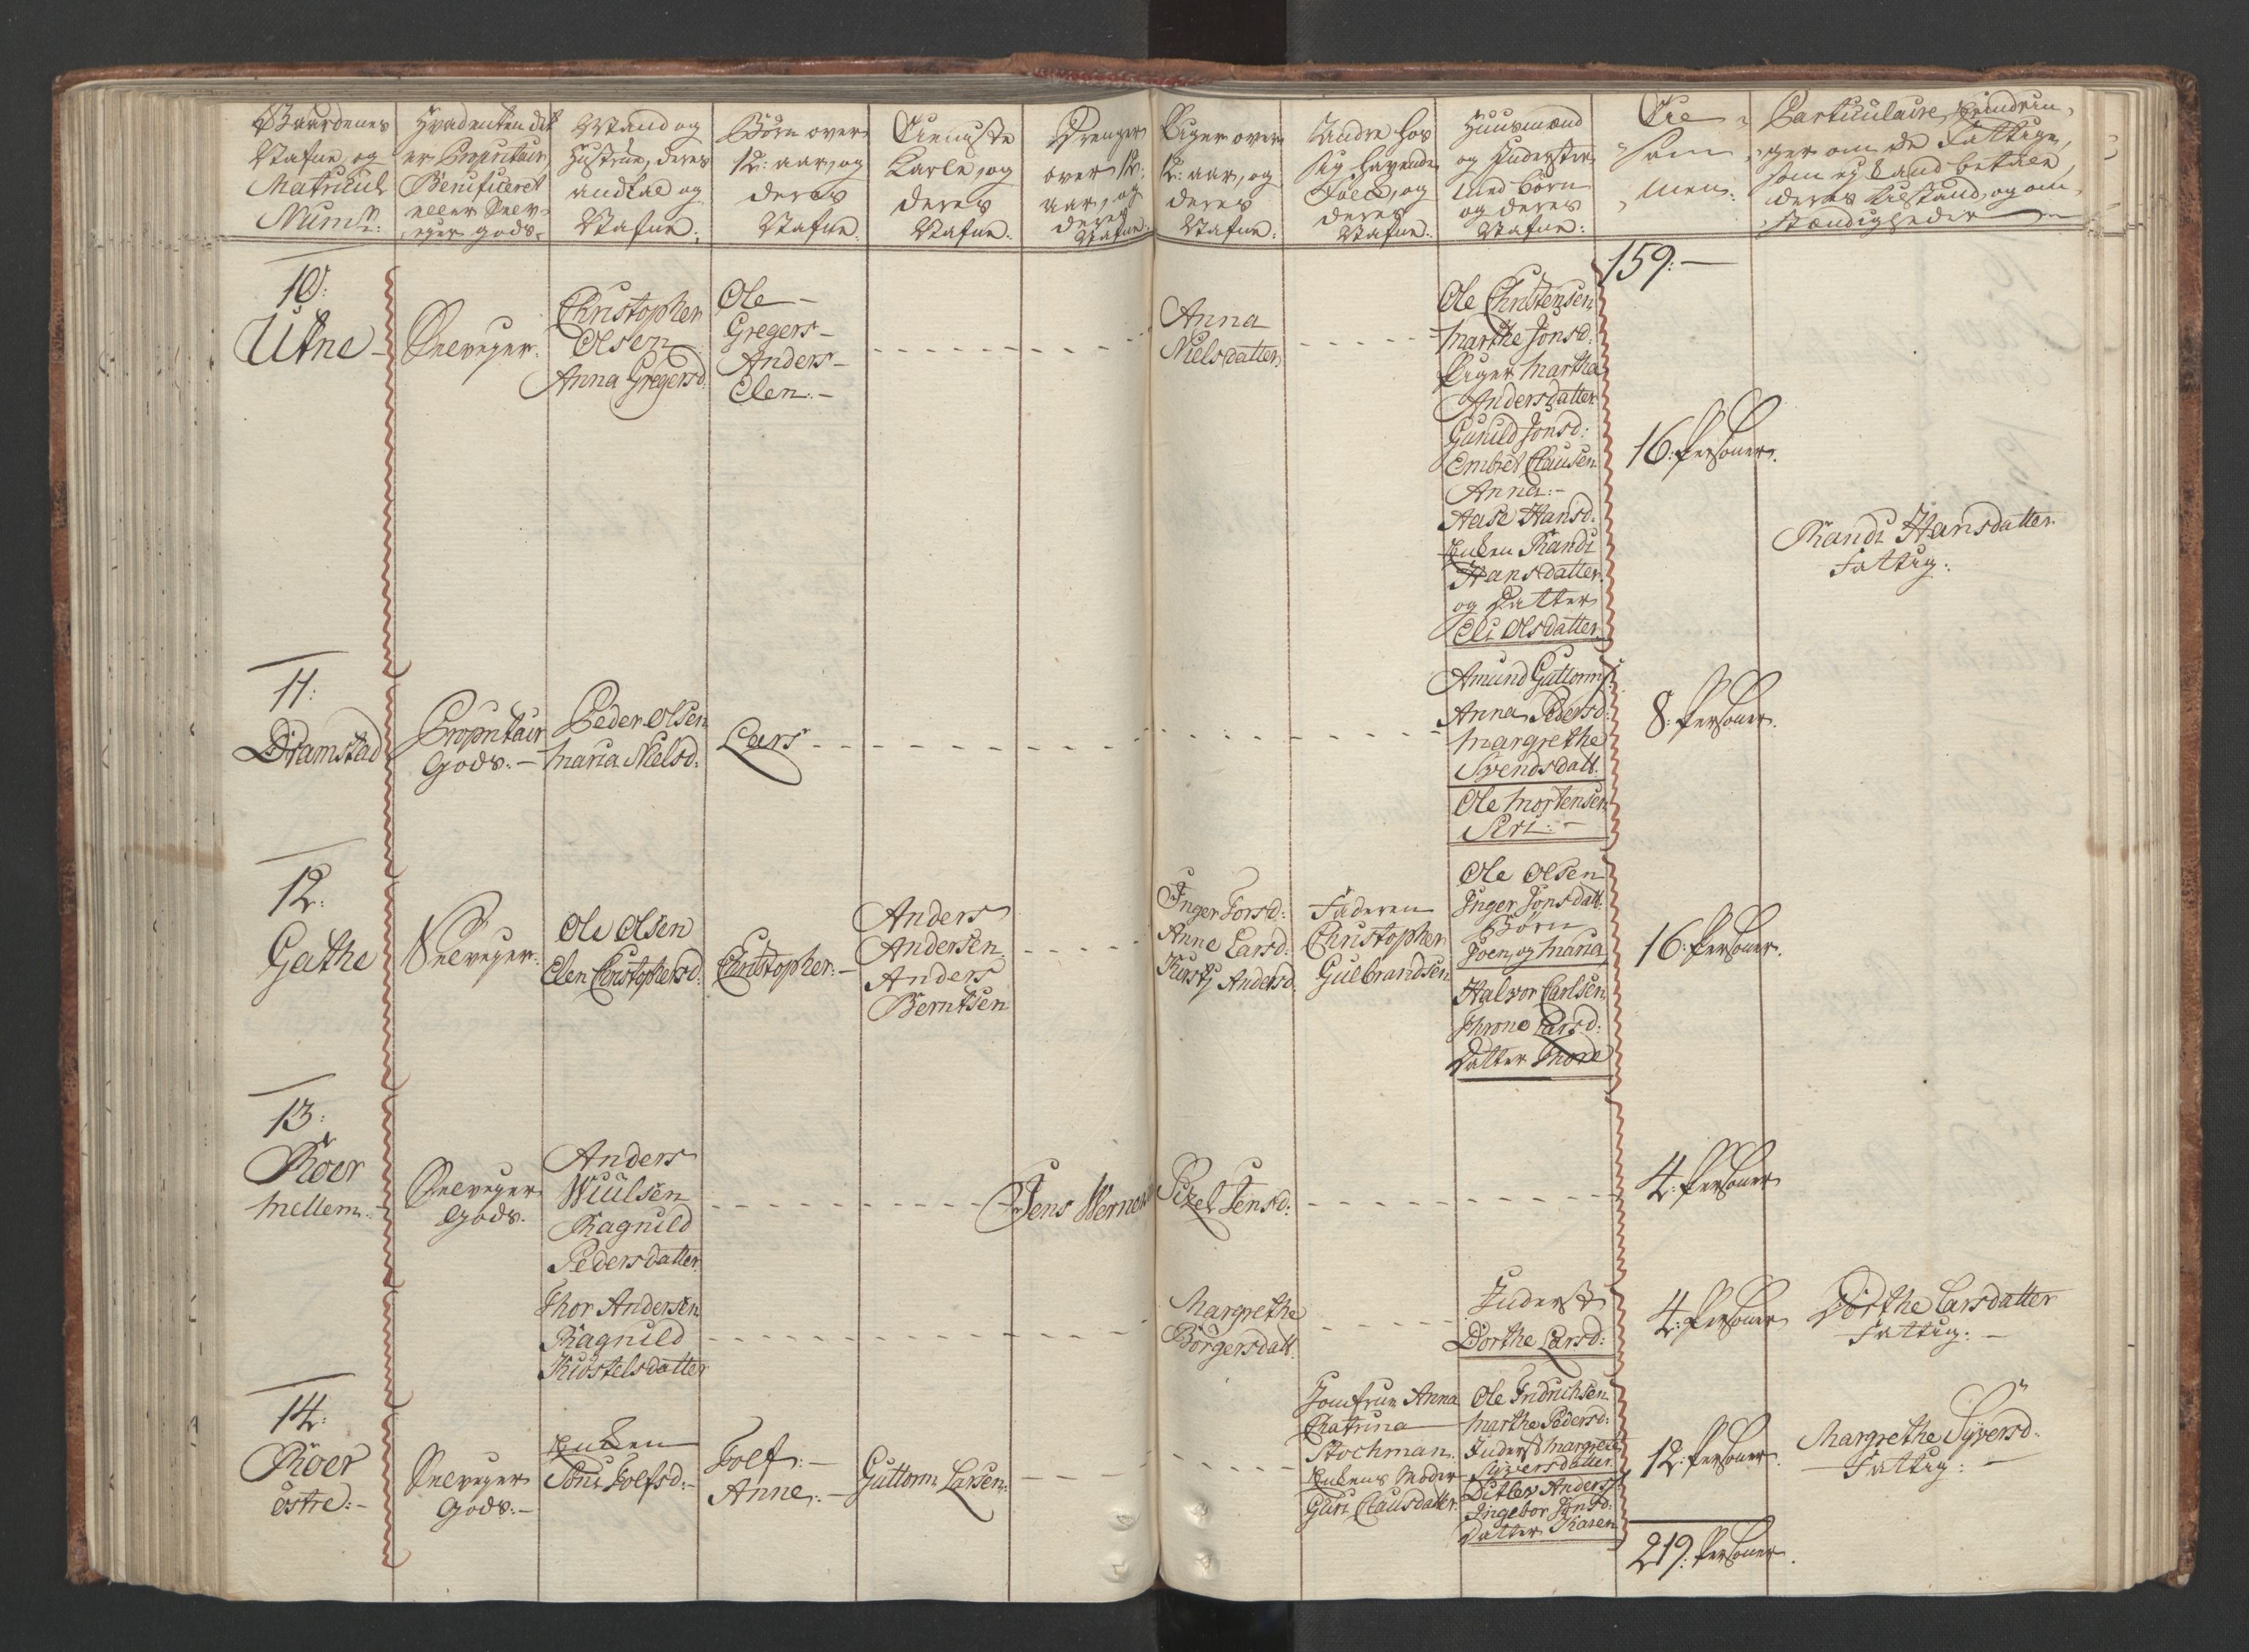 Gaardenes
Nafne, og
Matricul
Num̅:
Hvad enten det
er Propritair,
Benificeret
eller Selv-
eyer gods.
Mand og
Hustrue, deres
andtal og
Nafne:
Børn over
12: aar, og
deres
Nafne.
Tieniste
Karle, og
deres
Nafne:
Drenger
over 12:
aar, og
deres
Nafne:
Piger over
12: aar, og
deres
Nafne:
Andre hos
sig havende
Folck, og
deres
Nafne:
Huusmænd
og Inderster
med Børn
og deres
Nafne:
Til-
sam
men:
Particulaire
om de Fattige,
som ej kand betale,
deres tilstand, og om-
stændigheder
159:—
10:
Utne
Selveyer.
Christopher
Olsen
Anna Gregersd:
Ole —
Gregers —
Anders —
Elen: —
Anna
Nielsdatter
Ole Christensen
Marthe Jonsd:
Piger Martha
Andersdatter
Gunild Jonsd:
Embret Clausen
Anna: —
Aase Hansd:
Enken Randi
Hansdatter
og Datter
Eli Olsdatter
16: Personer.
Randi Hansdatter
Fattig:
11:
Dramstad
Propritair
Gods: —
Peder Olsen
Maria Nielsd:
Lars
Amund Guttorms:
Anna Pedersd:
Margrethe
Svendsdatt.
Ole Mortensen
Siri: —
8: Personer.
12:
Gathe
Selveyer.
Ole Olsen
Elen Christophersd:
Christopher: —
Anders
Andersen
Anders
Berntsen
Inger Torsd:
Anne Larsd:
Kirstj Andersd.
Faderen
Christopher
Gulbrandsen
Ole Olsen
Inger Jonsdatt.
Børn
Joen og Maria
Halvor Carlsen
Throne Larsd:
Datter Thore
16: Personer.
13:
Roer
Mellem: —
Selveyer
Gods.
Anders
Wiulsen
Ragnild
Pedersdatter
Jens Werner
Sizel Jensd:
4: Personer
Thor Andersen
Ragnild
Kiøstelsdatter
Margrethe
Børgersdatt.
Inderst
Dorthe Larsd:
4: Personer
Dorthe Larsdatter
Fattig: —
14:
Roer
østre: —
Selveyer
Gods: —
Enken
Toni Tolfsd: —
Tolf: —
Anne: —
Guttorm Larsen:
Jomfrue Anna
Chatrina
Stochman.
Enkens Moder
Guri Clausdatter.
Ole Fridrichsen
Marthe Pedersd:
Inderst Margrete
Syversdatter
Ditlev Anders:
Ingebor Jonsd:
Datter Karen
12: Personer.
Margrethe Syversd.
Fattig: —
219: Personer.